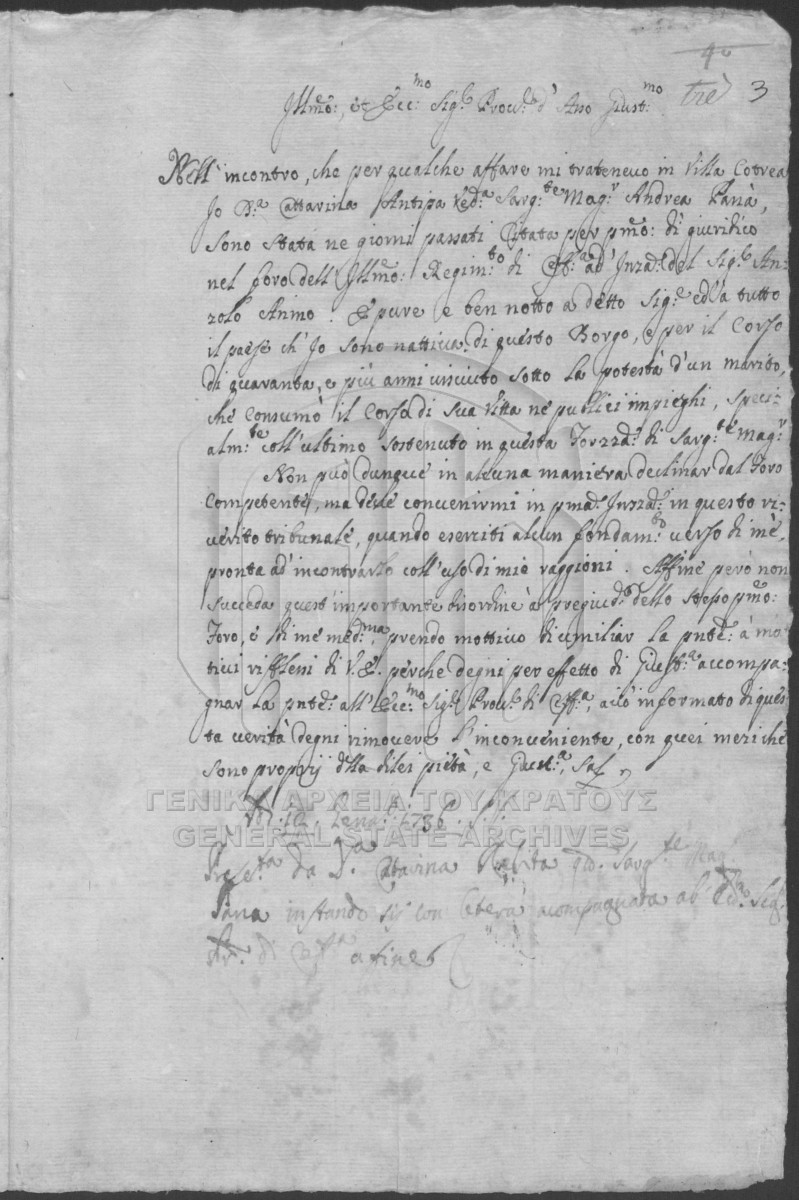 4
trè 3
Illmõ:, et Ecc:mo Sig:r Prov:r d' Asso Giust:mo
Nell' incontro, che per qualche affare mi trattenevo in Villa Cotrea
Io D:a Cattarina Antipa Ved:a Sarg:te Mag:r Andrea Panà,
sono stata ne giorni passati Citata per pmõ: di giuridico
nel foro dell' Illmõ: Regim:to di Ceff:a ad' Inza: del Sig:r An:
zolo Anino. E pure e ben notto a detto Sig:r ed' a tutto
il paese ch' Io sono nattiva di questo Borgo, e per il Corso
di quaranta, e più anni visciuto sotto la potestà d' un marito,
che Consumò il Corso di sua Vitta ne publici impieghi, speci:
alm:te coll' ultimo sostenuto in questa Forzza: di Sarg:te Mag:r
Non può dunque in alcuna maniera declinar dal Foro
Competente, ma deve convenirmi in pma: Inzza: in questo ri:
verito tribunale, quando eserciti alcun fondam:to verso di mè,
pronta ad' incontrarlo coll' uso di mie raggioni. Affine però non
succeda quest' importante disordine à pregiud: dello stesso pmõ:
Foro, e di me med:ma, prendo mottivo di umiliar la pnte: à mo
tivi riflessi di V.E. perche degni per effetto di Giust:a accompa:
gnar la pnte: all' Ecc:mo Sig:r Prov:r di Ceff:a, acciò informato di ques
ta verità degni rimovere l' inconveniente, con quei mezi che
sono proprij della di lei pietà, e Giust:a, Sal
ΓΕΝΙΚΑ ΑΡΧΕΙΑ ΤΟΥ ΚΡΑΤΟΥΣ
Add: 10 Genn: 1786 S.
GENERAL STATE ARCHIVES
Prese:ta da D:a Cattarina qd. Sarg:te Mag:
Pana instando sij con lettera acompagnata al
di Ceff:a a fine